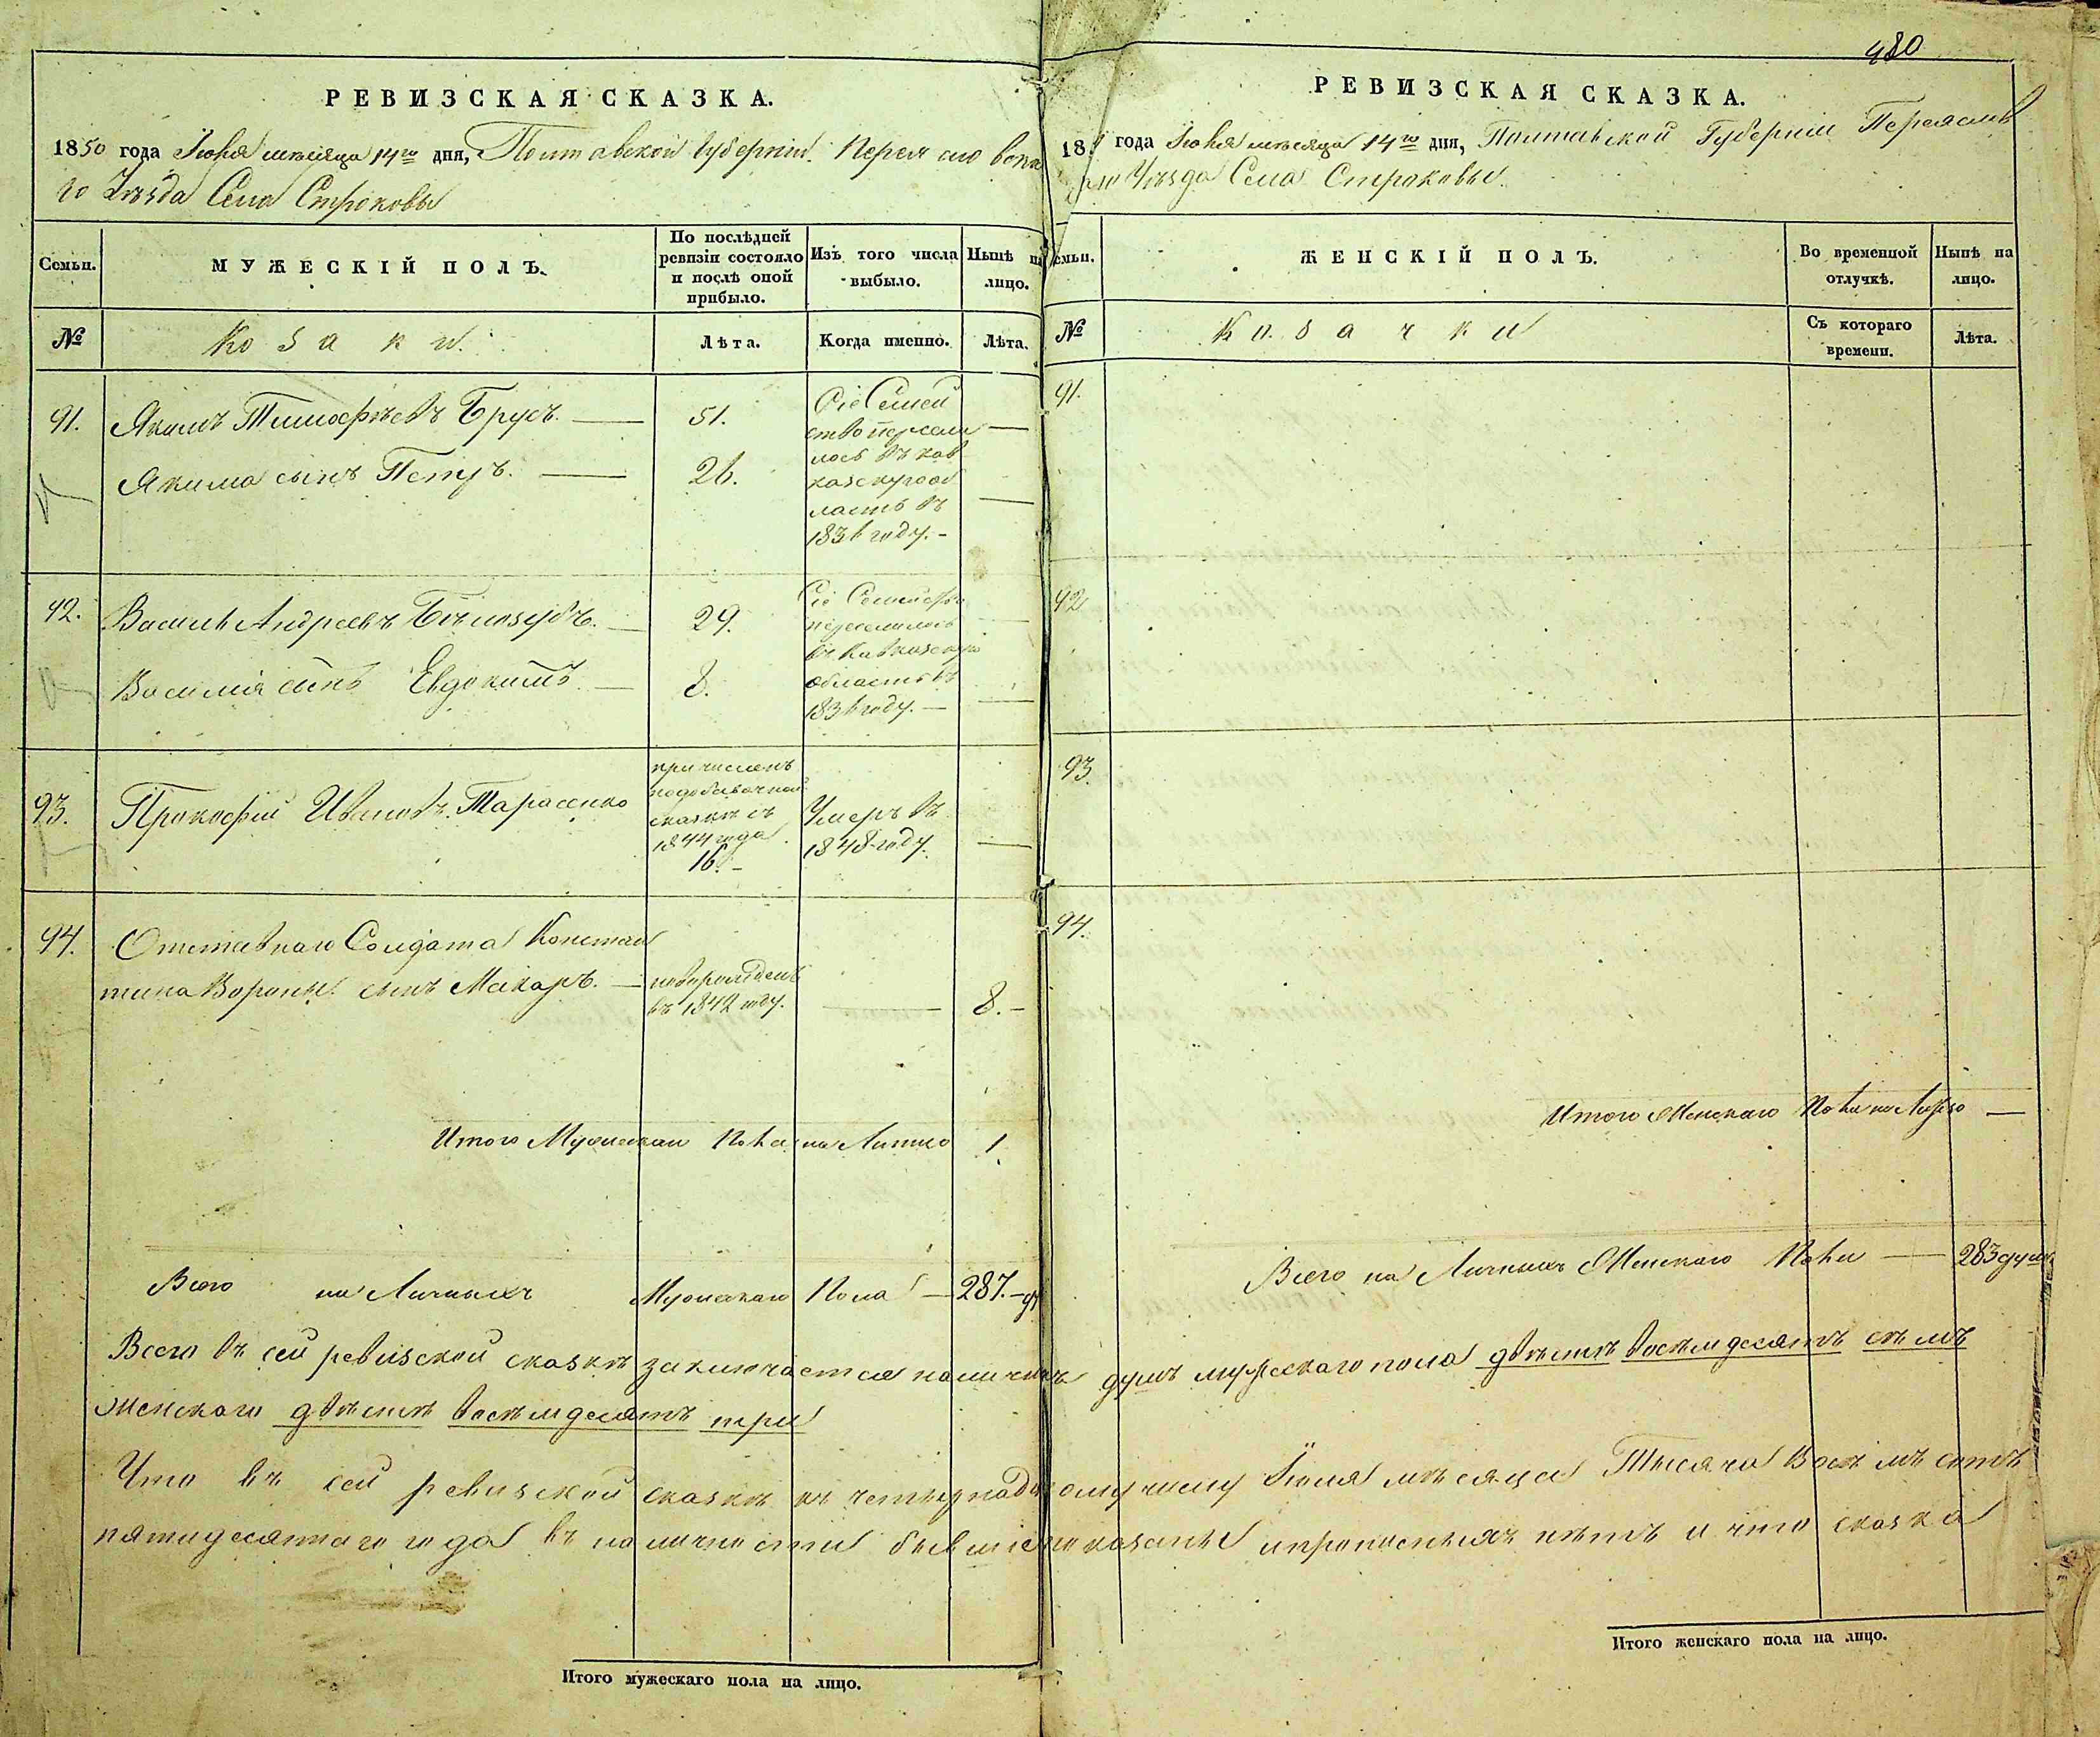 480
РЕВИЗСКАЯ СКАЗКА.
1850 года Іюня мѣсяца 14го дня, Полтавской Губерніи Переяславска
го Уѣзда Села Строковы
Семьи.
МУЖЕСКІЙ ПОЛЪ.
По послѣдней ревизіи состояло и послѣ оной прибыло.
Изъ того числа выбыло.
Нынѣ на лицо.
№
Козаки.
Лѣта.
Когда именно.
Лѣта.
91.
Якимъ Тимофѣевъ Брусъ. —
51.
Сіе Семей
ство пересели
лось въ кав
казскую об
ласть въ
1836 году. —
Якима сынъ Петръ. —
26.
92.
Василь Андреевъ Бѣлозубъ. —
29.
Сіе Семейство
переселилось
въ Кавказскую
область въ
1836 году. —
Василія сынъ Евдокимъ —
8.
93.
Прокофій Ивановъ Тарасенко
причисленъ
по добавочной
сказкѣ съ
1844 года
16. —
Умеръ въ
1848 году.
94.
Отставнаго Солдата Констан
тина Вороны сынъ Макаръ. —
новорожденъ
въ 1842 году.
8. —
Итого Мужескаго Пола на Лицо 1.
Всего на Личныхъ Мужескаго Пола — 287. — д
РЕВИЗСКАЯ СКАЗКА.
18 года Іюня мѣсяца 14го дня, Полтавской Губерніи Переяслав
го Уѣзда Села Строковы.
емьи.
ЖЕНСКІЙ ПОЛЪ.
Во временной отлучкѣ.
Нынѣ на лицо.
№
Козачки
Съ котораго времени.
Лѣта.
91.
92
93.
94.
Итого Женскаго Пола на Лицо —
Всего на Личныхъ Женскаго Пола — 283 душ
Всего въ сей ревизской сказкѣ заключается наличныхъ душъ мужескаго пола двѣсти восемдесятъ семь
женскаго двѣсти восемдесятъ три
Что въ сей ревизской сказкѣ къ четырнадцатому числу Іюня мѣсяца Тысяча Восемь сотъ
пятидесятаго года въ наличности бывшіе показаны и прописныхъ нѣтъ и что сказка
Итого мужескаго пола на лицо.
Итого женскаго пола на лицо.